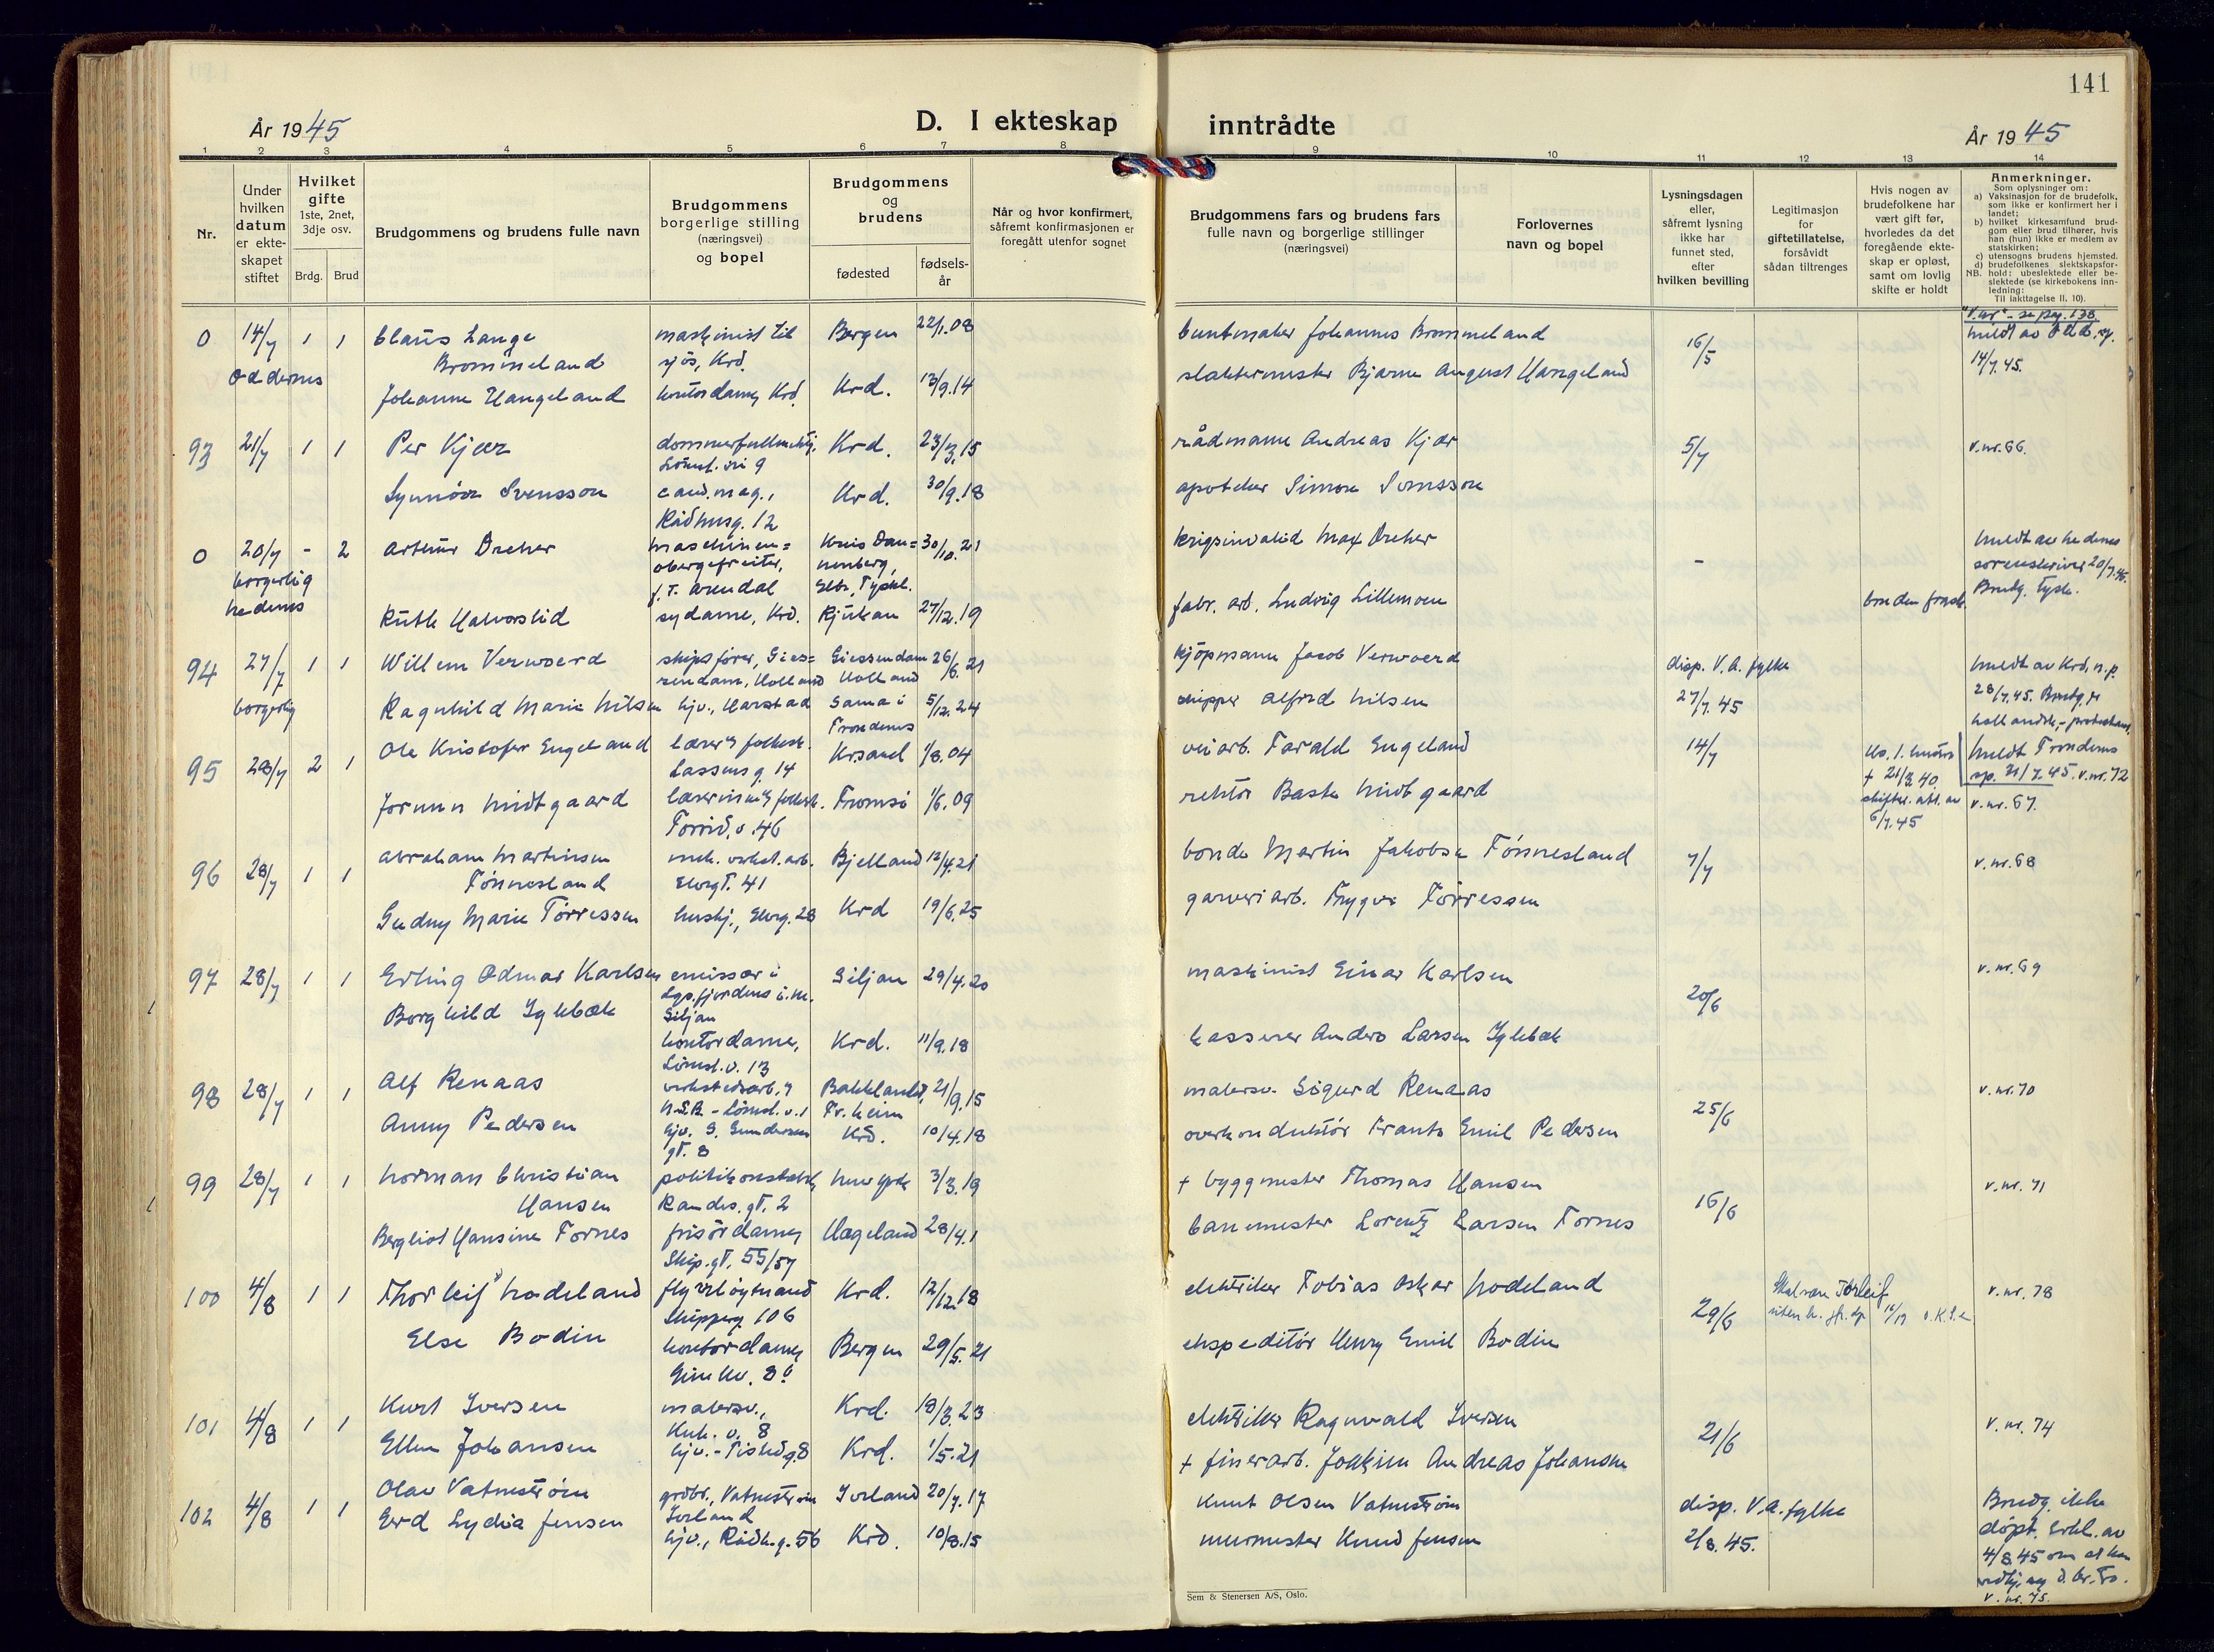 141
År 1945
D. I ekteskap
inntrådte
År 1945
1 2 3 4 5 6 7 8 9 10 11 12 13 14
Nr.
Under
hvilken
datum
er ekte-
skapet
stiftet
Hvilket
gifte
1ste, 2net,
3dje osv.
Brdg. Brud
Brudgommens og brudens fulle navn
Brudgommens
borgerlige stilling
(næringsvei)
og bopel
Brudgommens
og
brudens
fødested
fødsels-
år
Når og hvor konfirmert,
såfremt konfirmasjonen er
foregått utenfor sognet
Brudgommens fars og brudens fars
fulle navn og borgerlige stillinger
(næringsvei)
Forlovernes
navn og bopel
Lysningsdagen
eller,
såfremt lysning
ikke har
funnet sted,
efter
hvilken bevilling
Legitimasjon
for
giftetillatelse,
forsåvidt
sådan tiltrenges
Hvis nogen av
brudefolkene har
vært gift før,
hvorledes da det
foregående ekte-
skap er opløst,
samt om lovlig
skifte er holdt
Anmerkninger.
Som oplysninger om:
a) Vaksinasjon for de brudefolk,
som ikke er konfirmert her i
landet;
b) hvilket kirkesamfund brud-
gom eller brud tilhører, hvis
han (hun) ikke er medlem av
statskirken;
c) utensogns brudens hjemsted.
d) brudefolkenes slektskapsfor-
NB. hold: ubeslektede eller be-
slektede (se kirkebokens inn-
ledning:
Til iakttagelse II, 10).
0 14/7 1 1 Claus Lange maskinist til Bergen 22/1.08 buntmaker Johannes Brommeland 16/5
Oddernes Brommeland sjøs, Krd.
Johanne Hangeland kontordame, Krd. Krd. 13/9.14 slaktermester Bjarne August Hangeland 14/7.45.
93 21/7 1 1 Per Kjær Krd. 23/3.15 rådmann Andreas Kjær 5/7 v.nr. 66.
Synnöve Svensson cand.mag., Krd. 30/9.18 apoteker Simon Svensson
Rådhusg. 12
0 20/7 - 2 Arthur Dreher maschinen= Kreis Dan= 30/10.21 krigsinvalid Max Dreher -
borgerlig obergefreiter, nenberg,
hedenes f.T. Arendal Elbe, Tyskl. sorenskriver 20/7.45.
Ruth Halvorslid sydame, Krd. Rjukan 27/12.19 fabr. arb. Ludvig Lillemoen Brudg. tysk.
94 27/7 1 1 Willem Verwoerd skipsfører, Gies= Giessendam 26/6.21 kjøpmann Jacob Verwoerd disp. V.A. fylke
sendam, Holland Holland
borgerlig Ragnhild Marie Nilsen hjv., Harstad Sama i 5/12.24 skipper Alfred Nilsen 27/7.45
Trondenes
95 28/7 2 1 Ole Kristofer Engeland Krsand 1/8.04 veiarb. Tarald Engeland 14/7
Lassensg. 14
Jorunn Midtgaard Tromsö 1/6.09 rektor Midtgaard v.nr. 67.
Torrid.v. 46 6/7.45
96 28/7 1 1 Abraham Martinsen mek. verkst.arb. Bjelland 12/4.21 bonde Martin Jakobsen Fönnesland 7/7 v.nr. 68
Fönnesland Elvegt. 41
Gudny Marie Törressen hushj., Elveg. 28 Krd 19/6.25 garveriarb. Trygve Törressen
97 28/7 1 1 Erling Odmar Karlsen emissær i Siljan 29/4.20 maskinist Einar Karlsen 20/6 v.nr. 69
Borghild Iglebæk Siljan
kontordame, Krd. 11/9.18 kasserer Anders Larsen Iglebæk
Lömsl.v. 13
98 28/7 1 1 Alf Renaas Bakklandet, 21/9.15 malersv. Sigurd Renaas 25/6 v.nr. 70
N.S.B. - Lömsl.v. 1 Tr.heim
Anny Pedersen hjv. G. Gundersens Krd. 10/4.18 overkonduktör Frants Emil Pedersen
gt. 8
99 28/7 1 1 Norman Christian politikonstabel, New York 3/3.19 + byggmester Thomas Hansen 16/6 v.nr. 71
Hansen Randes.gt. 2
Bergliot Hansine Fornes frisördame, Hægeland 28/4.1 banemester Lorentz Larsen Fornes
Skip.gt. 55/57
100 4/8 1 1 Thorleif Nodeland flyverløytnant Krd. 12/12.18 elektriker Tobias Oskar Nodeland 29/6 Skal være Torleif v.nr. 78
Skipperg. 106
Else Bodin kontordame, Bergen 29/5.21 ekspeditör Henry Emil Bodin
101 4/8 1 1 Kurt Iversen malersv., Krd. 18/3.23 elektriker Ragnvald Iversen 21/6 v.nr. 74
Kuh.v. 8
Ellen Johansen hjv. - Tistedg. 8 Krd. 1/5.21 + finérarb. Joakim Andreas Johansen
102 4/8 1 1 Olav Vatneström grdbr., Vatneström Iveland 20/7.17 Knut Olsen Vatneström disp. V.A. fylke Brudg. ikke
Iveland døpt. Erkl. av
Gerd Lydia Jensen hjv., Rådh.g. 56 Krd. 10/8.15 murmester Knud Jensen 2/8.45. 4/8.45 om at han
v.nr. 75.
Sem & Stenersen A/S, Oslo.